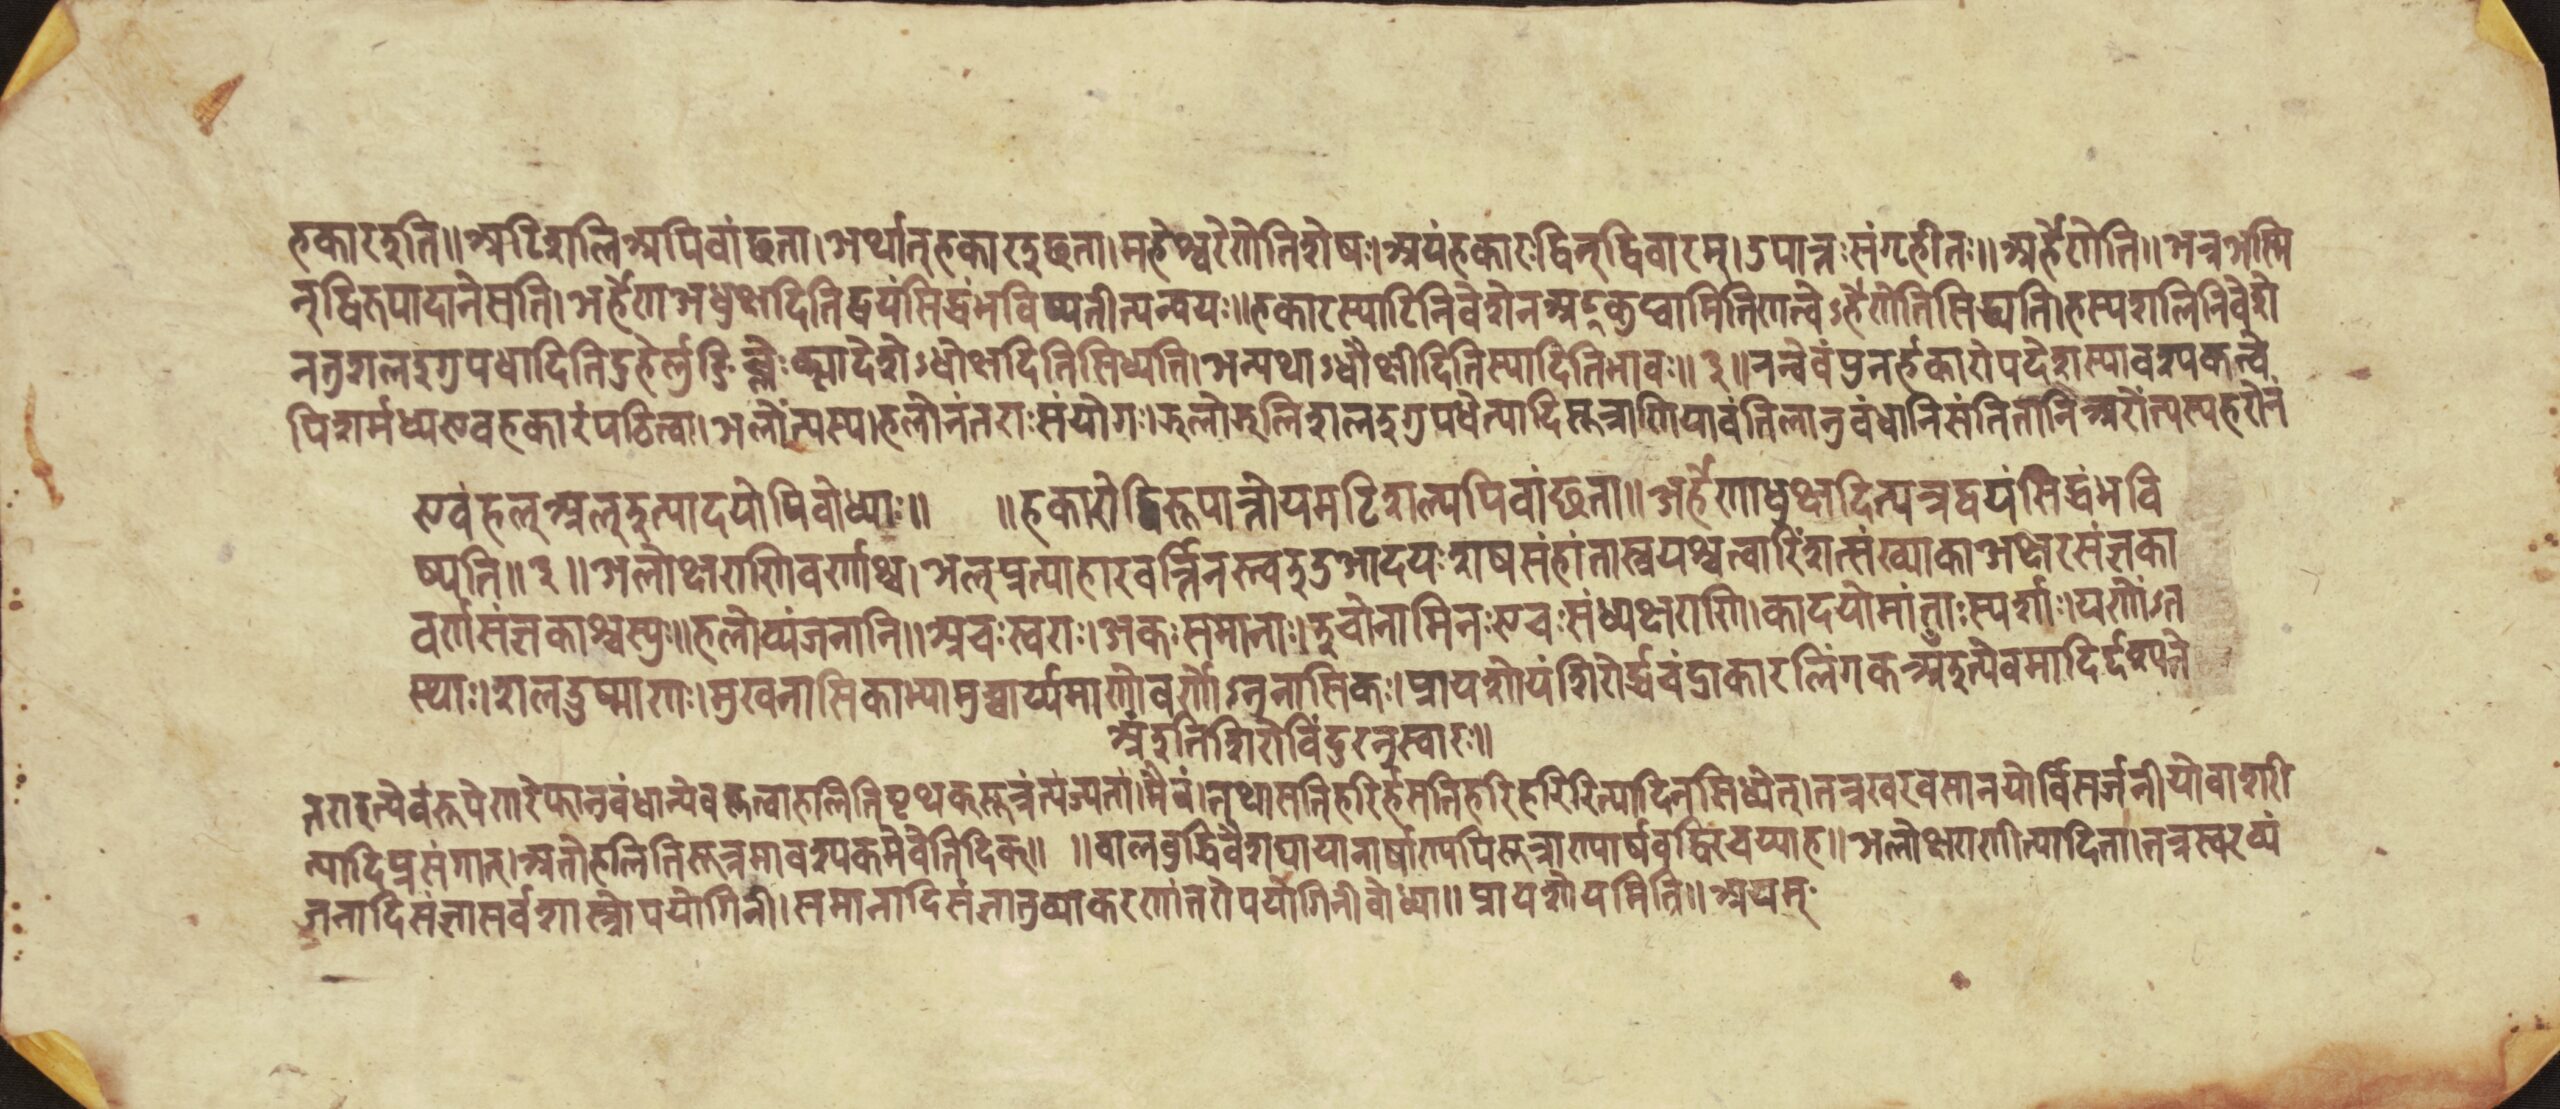 हकारइति॥अटिशलिअपिवांछता।अर्थात्हकारइछता।महेश्वरेणेतिशेषः।अयंहकारःद्विन्द्विवारम्।उपान्नःसंगृहीतः॥अर्हेणेति॥अत्रअस्मि
न्द्विरुपादानेसति।अर्हेणअधुक्षदितिद्वयंसिद्धंभविष्यतीत्यन्वयः॥हकारस्याटिनिवेशेनअट्कुप्वामितिणत्वेऽर्हेणेतिसिद्ध्यति।हस्यशलिनिवेशे
नतुशलइगुपधादितिदुहेर्लुङिच्लेःक्सादेशेऽधोक्षदितिसिध्यति।अन्यथाऽधौक्षीदितिस्यादितिभावः॥३॥नन्वेवंपुनर्हकारोपदेशस्यावश्यकत्वे
पिशर्मध्यएवहकारंपठित्वा।अलोंत्यस्य।हलोनंतराःसंयोगः।झलोझलिशलइगुपधेत्यादिसूत्राणियावंतिलानुबंधानिसंतितानिअरोंत्यस्यहरोनं
एवंहल्अल्इत्यादयोपिबोध्याः॥ ॥हकारोद्विरूपान्नोयमटिशल्यपिवांछता॥अर्हेणाधुक्षदित्यत्रद्वयंसिद्धंभवि
ष्यति॥३॥अलोक्षराणिवर्णाश्च।अल्प्रत्याहारवर्त्तिनस्त्वइउआदयःशषसहांतास्त्रयश्चत्वारिंशत्संख्याकाअक्षरसंज्ञका
वर्णसंज्ञकाश्चस्युः॥हलोव्यंजनानि॥अचःस्वराः।अकःसमानाः।इचोनामिनःएचःसंध्यक्षराणि।कादयोमांताःस्पर्शाः।यणोंऽत
स्थाः।शलउष्माणः।मुखनासिकाभ्यामुच्चार्य्यमाणोवर्णोऽनुनासिकः।प्रायशोयंशिरोर्द्धचंद्राकारलिंगकअँइत्येवमादिर्दृश्यते
अंइतिशिरोविंदुरनुस्वारः॥
तराइत्येवंरूपेणरेफानुबंधान्येवकृत्वाहलितिपृथक्सूत्रंत्यज्यतां।मैवं।तथासतिहरिर्हसतिहरिहरिरित्यादिनसिध्येत्।तत्रखरवसानयोर्विसर्जनीयोवाशरी
त्यादिप्रसंगात्।अतोहलितिसूत्रमावश्यकमेवेतिदिक्॥ ॥बालबुद्धिवैशद्यायानार्षाण्यपिसूत्राण्यार्षबुद्धिरचय्याह॥अलोक्षराणीत्यादिना।तत्रस्वरव्यं
जनादिसंज्ञासर्वशास्त्रोपयोगिनी।समानादिसंज्ञातुव्याकरणांतरोपयोगिनीबोध्या॥प्रायशोयमिति॥अयम्